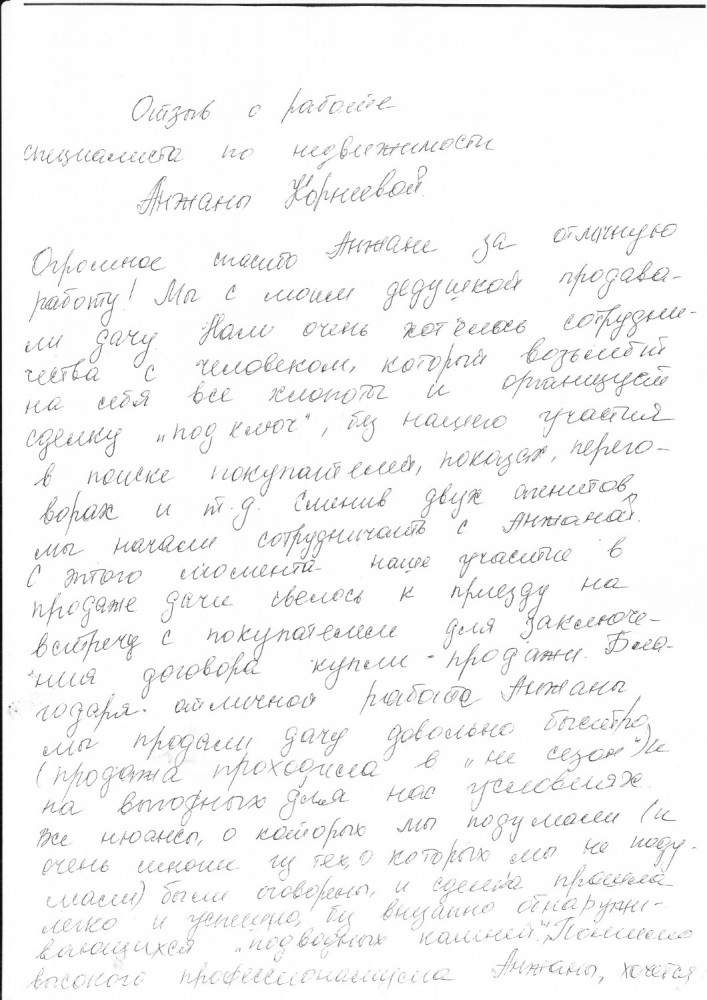 Отзыв о работе
специалиста по недвижимости
Анжаны Корнеевой.
Огромное спасибо Анжане за отличную
работу! Мы с моим дедушкой продава-
ли дачу. Нам очень хотелось сотрудни-
чества с человеком, который возьмёт
на себя все хлопоты и организует
сделку "под ключ", без нашего участия
в поиске покупателей, показах, перего-
ворах и т.д. Сменив двух агентов,
мы начали сотрудничать с Анжаной.
С этого момента наше участие в
продаже дачи свелось к приезду на
встречу с покупателем для заключе-
ния договора купли-продажи. Бла-
годаря отличной работе Анжаны,
мы продали дачу довольно быстро
(продажа проходила в "не сезон") и
на выгодных для нас условиях.
Все нюансы, о которых мы подумали (и
очень многие из тех, о которых мы не поду-
мали) были оговорены, и сделка прошла
легко и успешно, без внезапно обнаружи-
вающихся "подводных камней". Помимо
высокого профессионализма Анжаны, хочется